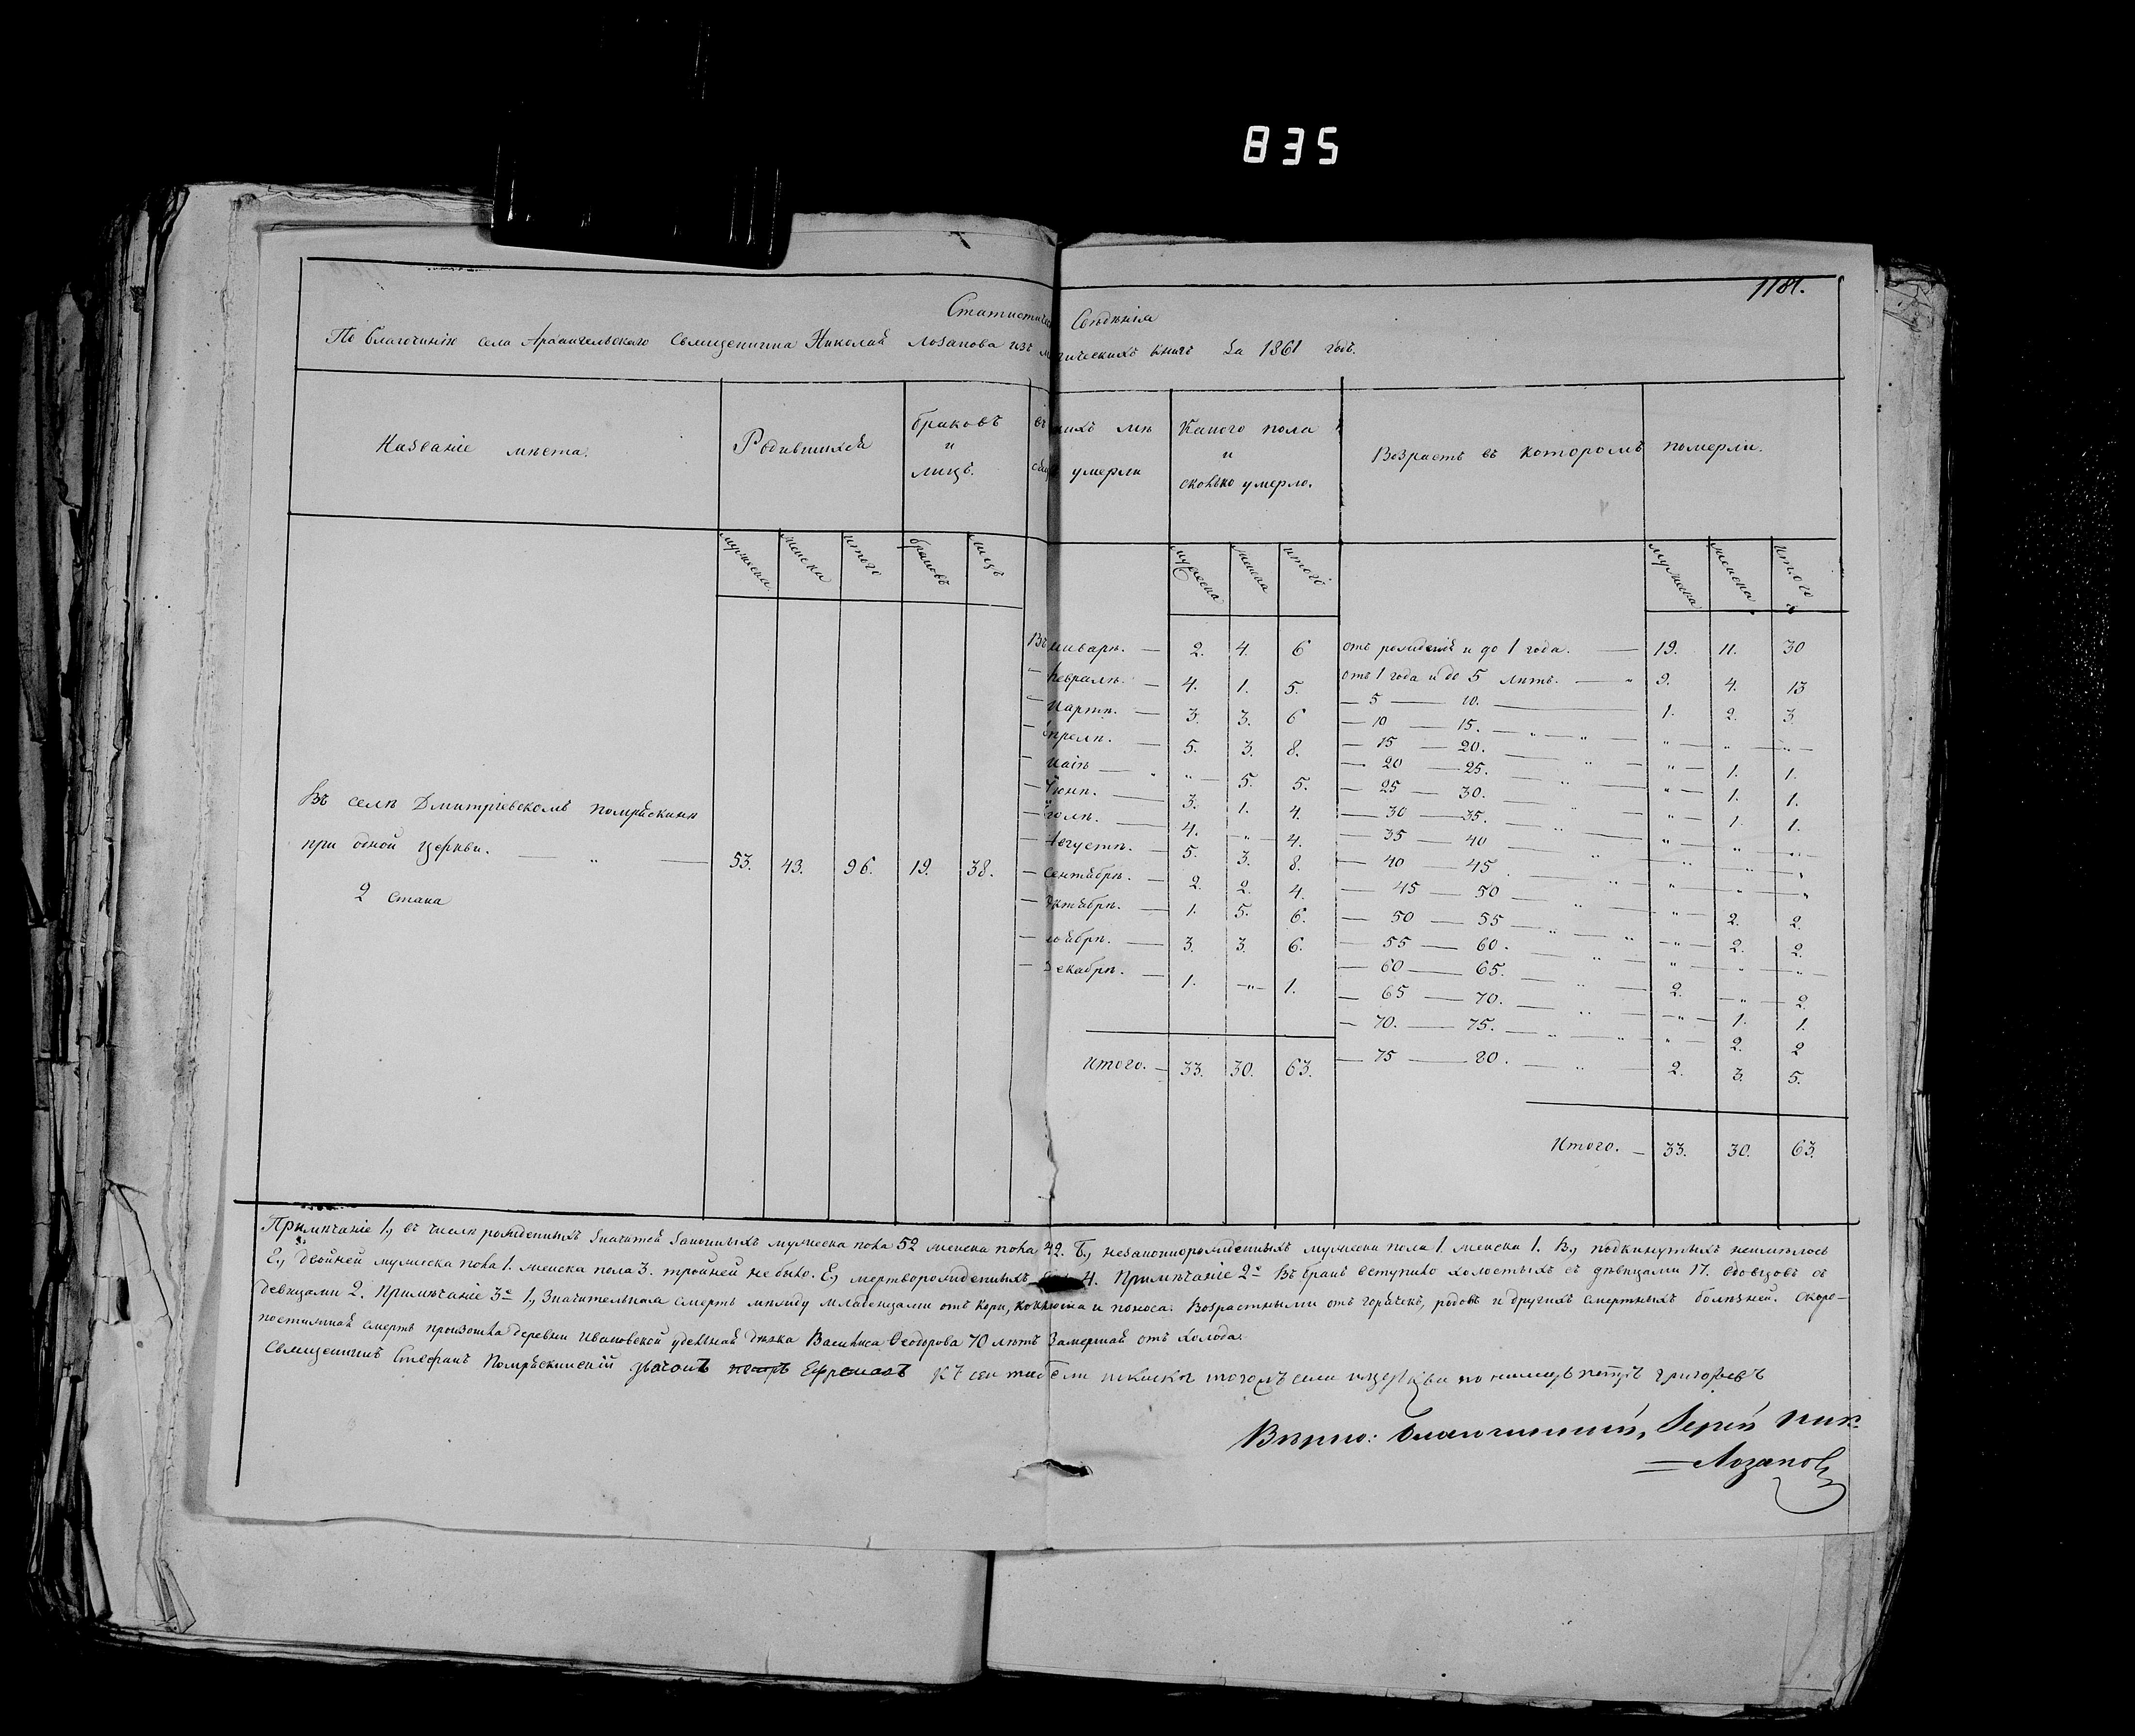 835
1181.
Статистическ Свѣдѣнія
По благочинію села Архангельскаго Священника Николай Лозанова изъ м рическихъ книгъ За 1861 годъ.
Названіе мѣста.
Родившихся
браковъ
и
лицъ.
въ кихъ мѣ
умерли
Какого пола
и
сколько умерло.
Возрастъ въ которомъ померли.
мужеска женска итого браковъ лицъ
мужеска женска итого
мужеска женска итого
Въ январѣ. — 2. 4. 6
— февралѣ. — 4. 1. 5.
— Мартѣ. — 3. 3. 6
— Апрелѣ. — 5. 3. 8.
— Маіѣ — „ „ — 5. 5.
— Іюнѣ. — 3. 1. 4.
— Іюлѣ. — 4. — „ — 4.
— Августѣ. — 5. 3. 8.
— Сентябрѣ. — 2. 2. 4.
— Октябрѣ. — 1. 5. 6.
— Ноябрѣ. — 3. 3. 6.
— Декабрѣ. — 1. — „ — 1.
Итого. — 33. 30. 63.
отъ рожденія и до 1 года. — 19. 11. 30
отъ 1 года и до 5 лѣтъ. — „ 9. 4. 13
— 5 — 10. — 1. 2. 3
— 10 — 15. — „ — „ — „ — „ — „ —
— 15 — 20. — „ — „ — 1. 1.
— 20 — 25. — „ — „ — 1. 1.
— 25 — 30. — „ — „ — 1. 1.
— 30 — 35. — „ — „ — „ — „ —
— 35 — 40 — „ — „ — „ — „
— 40 — 45. — „ — „ — „ — „
— 45 — 50 — „ — „ — 2. 2.
— 50 — 55 — „ — „ — „ — 2. 2.
— 55 — 60. — „ — „ — „ — „ —
— 60 — 65. — „ — 2. — „ — 2.
— 65 — 70. — „ — „ — 1. 1.
— 70. — 75. — „ — „ — „ — 2. 2
— 75 — 80. — „ — 2. 3. 5.
Итого. — 33. 30. 63.
Въ селѣ Дмитріевскомъ Помряскинѣ
при одной церкви. — „ — 53. 43. 96. 19. 38.
2 Стана
Примѣчаніе 1, въ числѣ рожденныхъ значится законныхъ мужеска пола 52 женска пола 42. Б, незаконнорожденныхъ мужеска пола 1. женска 1. В, подкинутыхъ неимѣлось
Е, двойней мужеска пола 1. женска пола 3. тройней не было. Е, мертворожденныхъ 4. Примѣчаніе 2е Въ бракъ вступило холостыхъ съ дѣвицами 17. вдовцовъ съ
девицами 2. Примѣчаніе 3е 1, Значительная смерть между младенцами отъ кори, коклюша и поноса. Возрастными отъ горячекъ, родовъ и другихъ смертныхъ болѣзней. Скоро-
постижная смерть произошла деревни Ивановской удельная дѣвка Василиса Ѳеодорова 70 лѣтъ Замершая отъ холода.
Священникъ Стефанъ Помряскинскій дьячокъ Ефремовъ К сей церкви Петръ Григорьевъ
Вѣрно: Благочинный, Іерей Ник.
— Лозановъ